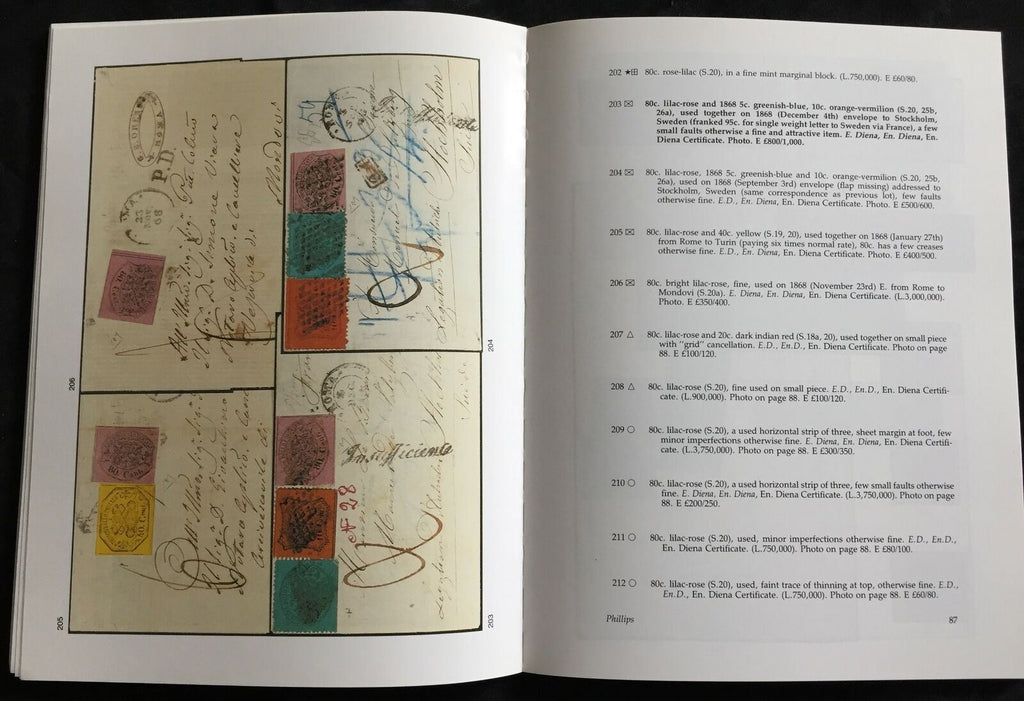 206
204
205
203
P.D
ROMA
23
NOV
68
All' Illmo Sig. Sig.
Mondovì
80 CENT
40 Cent
Stockholm
Insufficiente
N 28
202 ★⊞ 80c. rose-lilac (S.20), in a fine mint marginal block. (L.750,000). E £60/80.
203 ✉ 80c. lilac-rose and 1868 5c. greenish-blue, 10c. orange-vermilion (S.20, 25b,
26a), used together on 1868 (December 4th) envelope to Stockholm,
Sweden (franked 95c. for single weight letter to Sweden via France), a few
small faults otherwise a fine and attractive item. E. Diena, En. Diena, En.
Diena Certificate. Photo. E £800/1,000.
204 ✉ 80c. lilac-rose, 1868 5c. greenish-blue and 10c. orange-vermilion (S.20, 25b,
26a), used on 1868 (September 3rd) envelope (flap missing) addressed to
Stockholm, Sweden (same correspondence as previous lot), few faults
otherwise fine. E.D., En. Diena, En. Diena Certificate. Photo. E £500/600.
205 ✉ 80c. lilac-rose and 40c. yellow (S.19, 20), used together on 1868 (January 27th)
from Rome to Turin (paying six times normal rate), 80c. has a few creases
otherwise fine. E.D., En. Diena, En. Diena Certificate. Photo. E £400/500.
206 ✉ 80c. bright lilac-rose, fine, used on 1868 (November 23rd) E. from Rome to
Mondovi (S.20a). E. Diena, En. Diena, En. Diena Certificate. (L.3,000,000).
Photo. E £350/400.
207 △ 80c. lilac-rose and 20c. dark indian red (S.18a, 20), used together on small piece
with "grid" cancellation. E.D., En.D., En. Diena Certificate. Photo on page
88. E £100/120.
208 △ 80c. lilac-rose (S.20), fine used on small piece. E.D., En.D., En. Diena Certifi-
cate. (L.900,000). Photo on page 88. E £100/120.
209 ○ 80c. lilac-rose (S.20), a used horizontal strip of three, sheet margin at foot, few
minor imperfections otherwise fine. E. Diena, En. Diena, En. Diena Certifi-
cate. (L.3,750,000). Photo on page 88. E £300/350.
210 ○ 80c. lilac-rose (S.20), a used horizontal strip of three, few small faults otherwise
fine. E. Diena, En. Diena, En. Diena Certificate. (L.3,750,000). Photo on page
88. E £200/250.
211 ○ 80c. lilac-rose (S.20), used, minor imperfections otherwise fine. E.D., En.D.,
En. Diena Certificate. (L.750,000). Photo on page 88. E £80/100.
212 ○ 80c. lilac-rose (S.20), used, faint trace of thinning at top, otherwise fine. E.D.,
En.D., En. Diena Certificate. (L.750,000). Photo on page 88. E £60/80.
Phillips 87